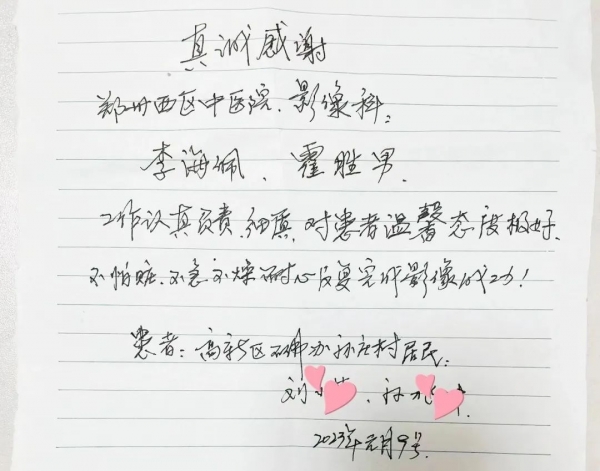 真诚感谢
郑州西区中医院.影像科:
李海佩、霍胜男.
工作认真负责,细真,对患者温馨态度极好.
不怕脏.不急不燥耐心反复完成影像成功!
患者:高新区石佛办孙庄村居民:
刘小、孙
2023年元月9号.